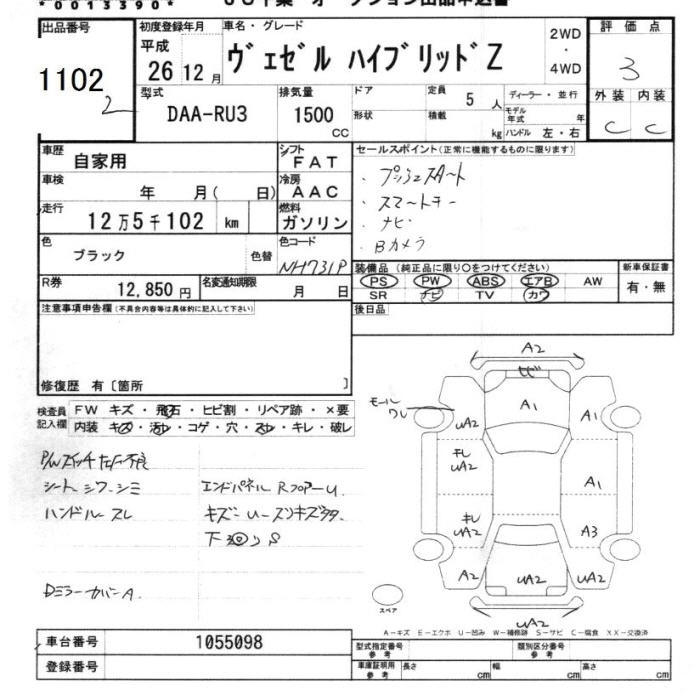 *0013390*
出品番号
1102
2
初度登録年月
平成
26 12月
車名・グレード
ヴェゼル ハイブリッドZ
2WD
・
4WD
評価点
3
外装 内装
C C
型式
DAA-RU3
排気量
1500
CC
ドア
形状
定員
5 人
積載
kg
ディーラー・並行
モデル年式 年
ハンドル 左・右
車歴
自家用
シフト
FAT
車検
年 月( 日)
冷房
AAC
走行
12万5千102 km
燃料
ガソリン
色
ブラック
色替
色コード
NH731P
R券
12,850円
名変通知期限
月 日
セールスポイント(正常に機能するものに限ります)
・プッシュスタート
・スマートキー
・ナビ
・Bカメラ
装備品(純正品に限り○をつけてください)
PS PW ABS エアB AW
SR ナビ TV カワ
新車保証書
有・無
後日品
注意事項申告欄(不具合内容等は具体的に記入して下さい)
修復歴 有〔箇所 〕
検査員
記入欄
FW キズ・飛石・ヒビ割・リペア跡・×要
内装 キズ・汚れ・コゲ・穴・スレ・キレ・破レ
P/Wスイッチ
シート シワ・シミ
ハンドル スレ
エンドパネル RフロアーU
キズーU
下回りS
DミラーカバーA
A2
ヒビ
A1
モール
ワレ
UA2
A1
キレ
UA2
A1
キレ
UA2
A3
A2
UA2
UA2
UA2
スペア
A－キズ E－エクボ U－凹み W－補修跡 S－サビ C－腐食 XX－交換済
車台番号
1055098
登録番号
型式指定番号
参考
類別区分番号
参考
車庫証明用
参考
長さ cm
幅 cm
高さ cm